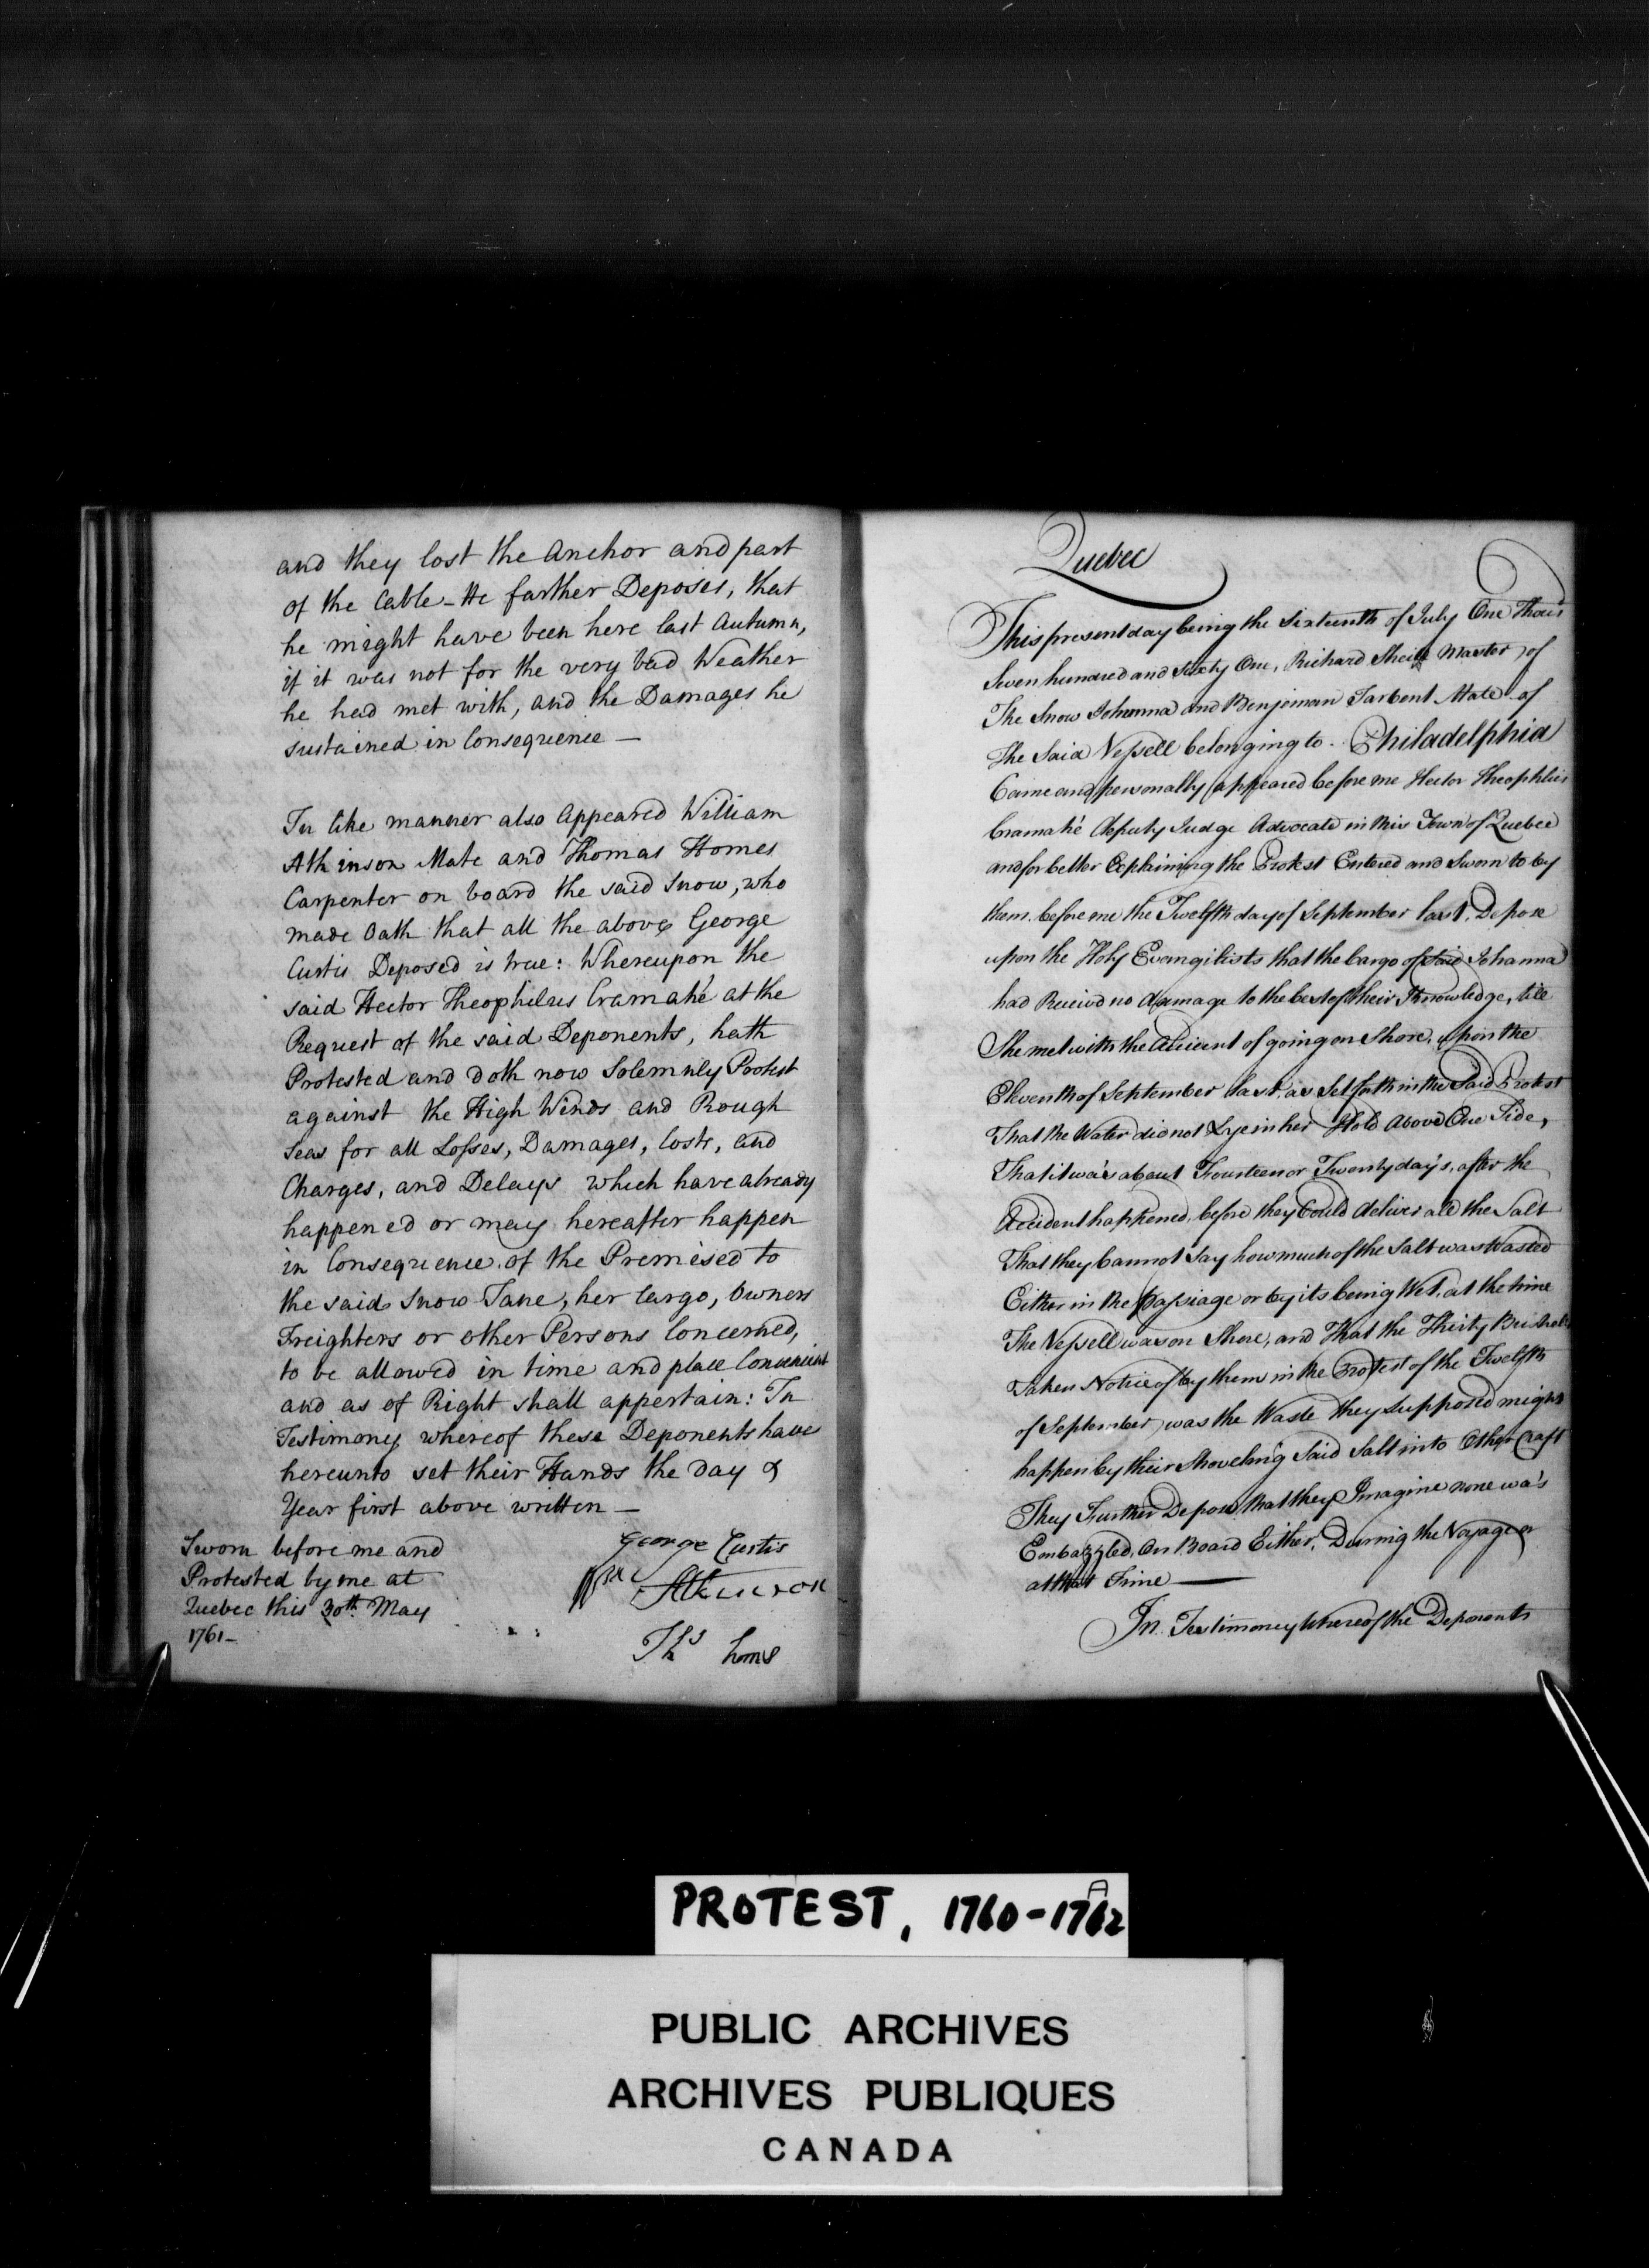 and they lost the Anchor and part
of the Cable - He farther Deposes, that
he might have been here last Autumn,
if it was not for the very bad Weather
he had met with, and the Damages he
sustained in Consequence —
In like manner also Appeared William
Atkinson Mate and Thomas Homes
Carpenter on board the said Snow, who
made Oath that all the above George
Curtis Deposed is true: Whereupon the
said Hector Theophilus Cramahé at the
Request of the said Deponents, hath
Protested and doth now Solemnly Protest
against the High Winds and Rough
Seas for all Losses, Damages, Costs, and
Charges, and Delays which have already
happened or may hereafter happen
in Consequence of the Premised to
the said Snow Jane, her Cargo, Owners
Freighters or other Persons Concerned,
to be allowed in time and place Convenient
and as of Right shall appertain: In
Testimony whereof these Deponents have
hereunto set their Hands the Day &
Year first above written —
Sworn before me and
Protested by me at
Quebec this 30th. May
1761 -
George Curtis
Wm Atkinson
Ths homs
Quebec
This present day being the Sixteenth of July One Thous
Seven hundred and Sixty One, Richard Master of
The Snow Johanna and Benjaman Tarbent Mate of
The Said Vessell belonging to Philadelphia
Came and personally appeared before me Hector Theophlis
Cramahé Deputy Judge Advocate in this Town of Quebec
and for better Explaining the Protest Entered and Sworn to by
them before me the Twelfth day of September last, Depose
upon the Holy Evangilists that the Cargo of Said Johanna
had Received no damage to the best of their Knowledge, till
She met with the Accident of going on Shore, upon the
Eleventh of September last, as Set forth in the Said Protest
That the Water did not Lye in her Hold Above One Tide,
That it wa's about Fourteen or Twenty day's, after the
Accident happened, before they Could deliver all the Salt
That they Cannot Say how much of the Salt was Wasted
Either in the Passiage or by its being Wet, at the time
The Vessell was on Shore, and That the Thirty Bushels
Taken Notice of by them in the Protest of the Twelfth
of September was the Waste They Supposed might
happen by their Shoveling Said Salt into Other Craft
They Further Depose, that they Imagine none wa's
Embazzled, On Board Either, During the Voyage or
at that Time —
In Testimoney Whereof the Deponents
PROTEST, 1760-1762
PUBLIC ARCHIVES
ARCHIVES PUBLIQUES
CANADA